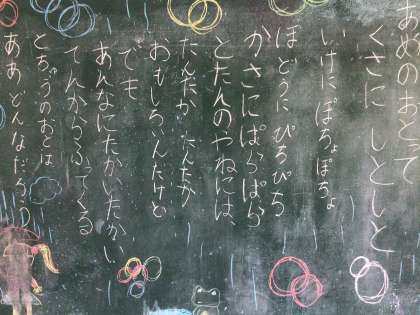 あめのおとって
くさに しとしと
いけに ぽちょぽちょ
ほどうに ぴちぴち
かさにぱらぱら
とたんのやねには、
たんたか たんたか
おもしろいんだけど
でも
あんなにたかいたかい
てんからふってくる
とちゅうのおとは
ああ どんなだろう